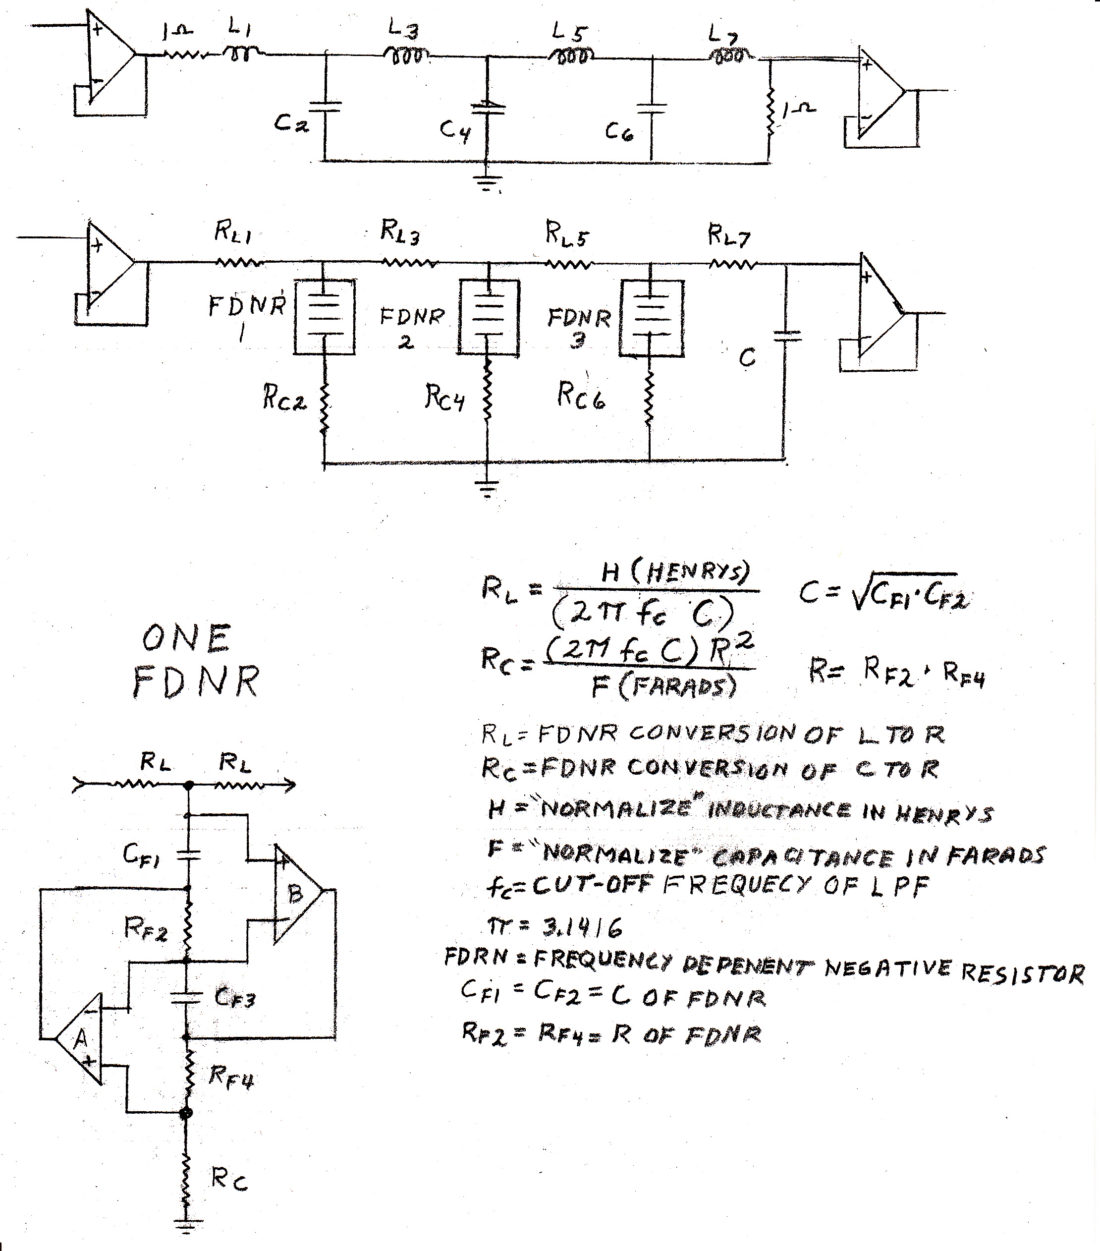 +
-
1Ω L1 L3 L5 L7
+
-
C2 C4 C6 1Ω
+
-
RL1 RL3 RL5 RL7
+
-
FDNR 1
FDNR 2
FDNR 3
C
RC2 RC4 RC6
RL = H (HENRYS) / (2π fc C)
C = √CF1·CF2
RC = (2π fc C) R² / F (FARADS)
R = RF2 · RF4
RL = FDNR CONVERSION OF L TO R
RC = FDNR CONVERSION OF C TO R
H = "NORMALIZE" INDUCTANCE IN HENRYS
F = "NORMALIZE" CAPACITANCE IN FARADS
fc = CUT-OFF FREQUECY OF LPF
π = 3.1416
FDRN = FREQUENCY DEPENENT NEGATIVE RESISTOR
CF1 = CF2 = C OF FDNR
RF2 = RF4 = R OF FDNR
ONE
FDNR
RL RL
CF1
+
B
-
RF2
CF3
-
A
+
RF4
RC